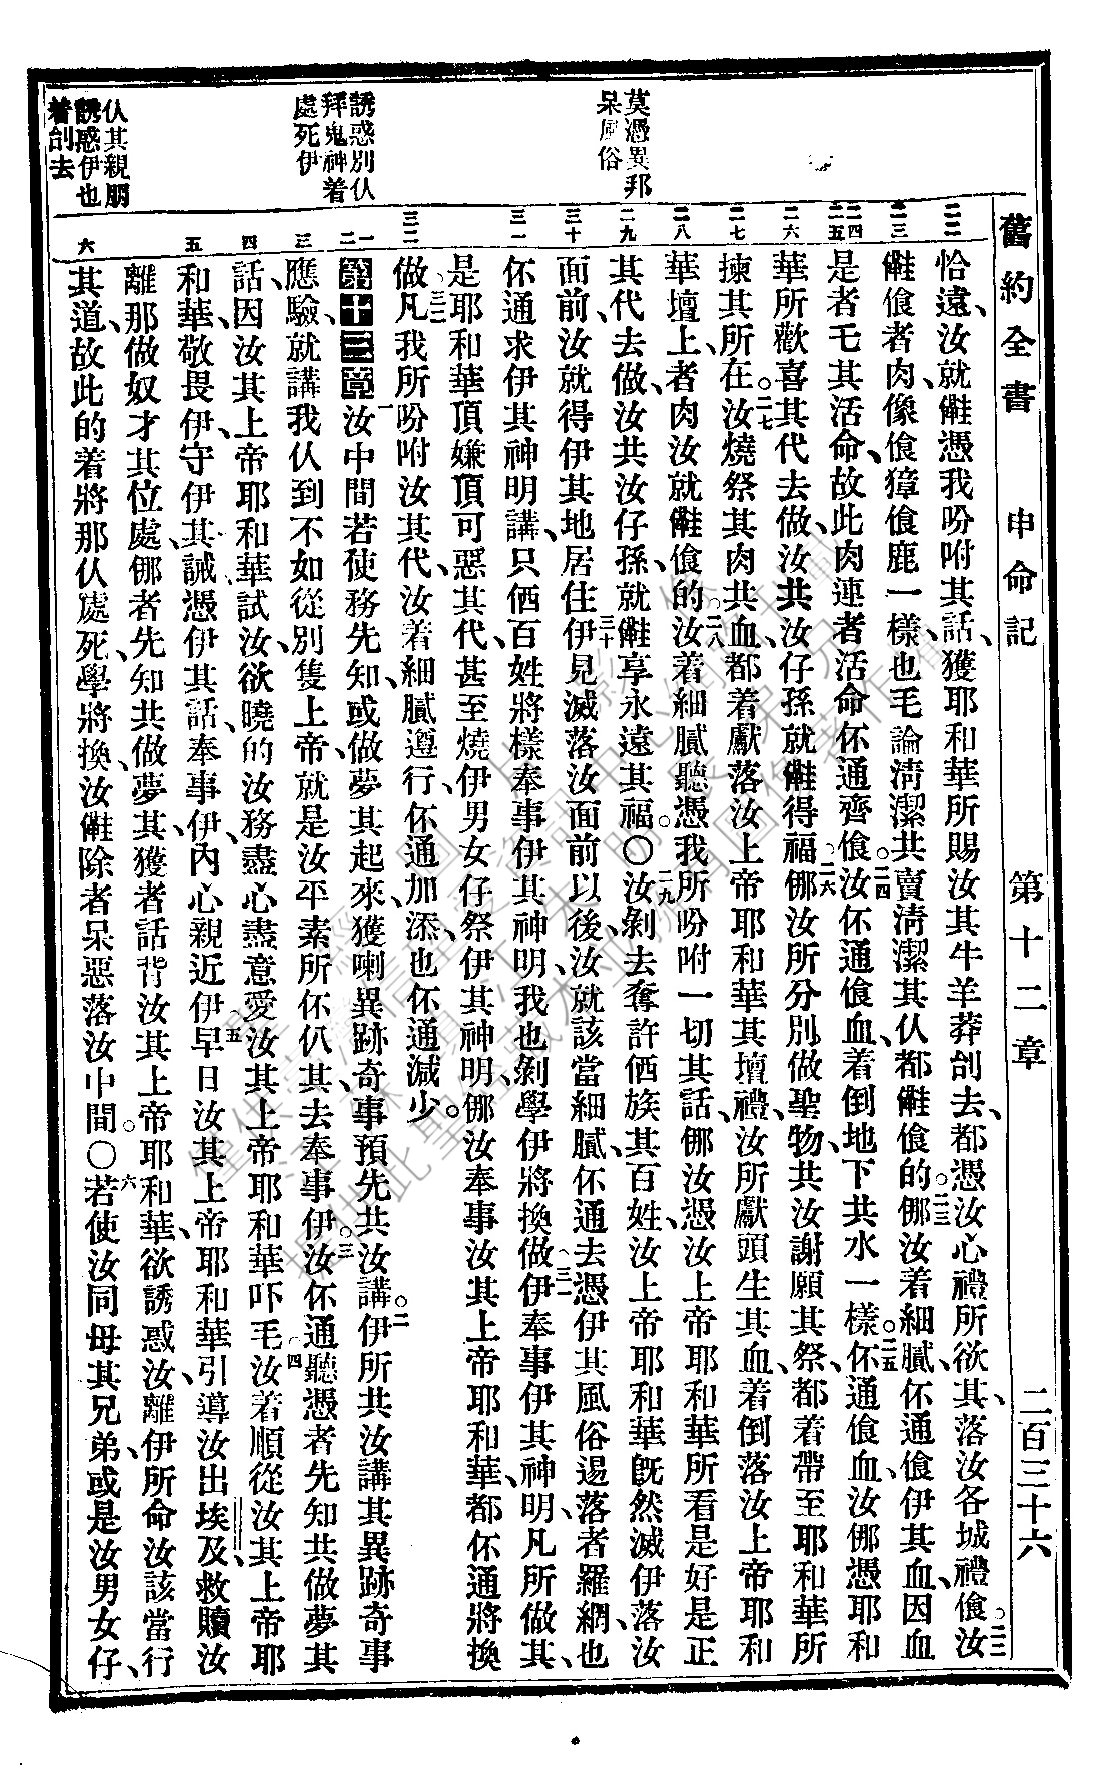 舊約全書 申命記 第十二章 二百三十六
恰遠、汝就儶憑我吩咐其話、獲耶和華所賜汝其牛羊莽刣去、都憑汝心禮所欲其、落汝各城禮飡汝
儶飡者肉、像飡獐飡鹿一樣、也毛論淸潔共賣淸潔其仈、都儶飡的。二三㑚汝着細膩伓通飡伊其血、因血
是者乇其活命、故此肉連者活命伓通齊飡。二四汝伓通飡血、着倒地下共水一樣。二五伓通飡血、汝㑚憑耶和
華所歡喜其代去做、汝共汝仔孫就儶得福。二六㑚汝所分別做聖物、共汝謝願其祭、都着帶至耶和華所
揀其所在。二七汝燒祭其肉共血、都着獻落汝上帝耶和華其壇禮、汝所獻頭生其血、着倒落汝上帝耶和
華壇上、者肉汝就儶飡的。二八汝着細膩聽憑我所吩咐一切其話、㑚汝憑汝上帝耶和華所看是好是正
其代去做、汝共汝仔孫、就儶享永遠其福。○二九汝剝去奪許𠈉族其百姓、汝上帝耶和華旣然滅伊落汝
面前、汝就得伊其地居住、三十伊見滅落汝面前以後、汝就該當細膩、伓通去憑伊其風俗逿落者羅網、也
伓通求伊其神明講、只𠈉百姓將樣奉事伊其神明、我也剝學伊將換做。三一伊奉事伊其神明、凡所做其、
是耶和華頂嫌頂可惡其代、甚至燒伊男女仔、祭伊其神明、㑚汝奉事汝其上帝耶和華、都伓通將換
做。三二凡我所吩咐汝其代、汝着細膩遵行、伓通加添、也伓通減少。
第十三章 一汝中間若使務先知、或做夢其起來、獲喇異跡奇事預先共汝講。二伊所共汝講其異跡奇事
應驗、就講我仈到不如從別隻上帝、就是汝平素所伓仈其去奉事伊。三汝伓通聽憑者先知共做夢其
話、因汝其上帝耶和華試汝、欲曉的汝務盡心盡意愛汝其上帝耶和華吓毛。四汝着順從汝其上帝耶
和華、敬畏伊、守伊其誡、憑伊其話、奉事伊、內心親近伊。五早日汝其上帝耶和華引導汝出埃及、救贖汝
離那做奴才其位處、㑚者先知共做夢其、獲者話背汝其上帝耶和華、欲誘惑汝、離伊所命汝該當行
其道、故此的着將那仈處死、學將換、汝儶除者呆惡落汝中間。○六若使汝同母其兄弟、或是汝男女仔、
莫憑異邦
呆風俗
誘惑別仈
拜鬼神着
處死伊
仈其親朋
誘惑伊也
着刣去
二二
二三
二四
二五
二六
二七
二八
二九
三十
三一
三二
一
二
三
四
五
六